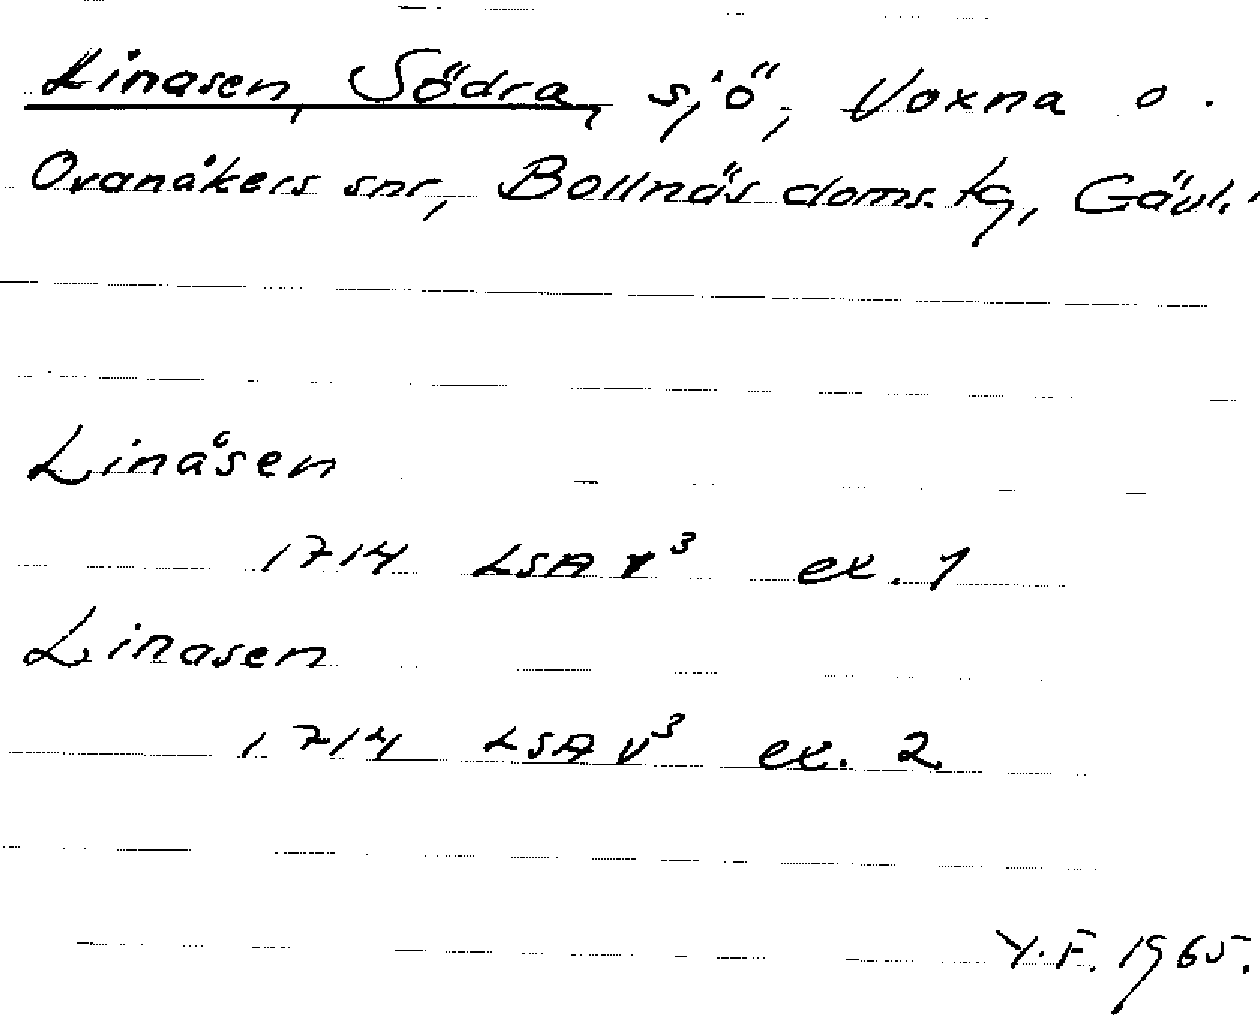 Linasen, Södra, sjö, Voxna o.
Ovanåkers snr, Bollnäs doms. tg, Gävl.
Linåsen
1714 LSA V³ ex. 1
Linasen
1714 LSA V³ ex. 2
Y.F. 1965.